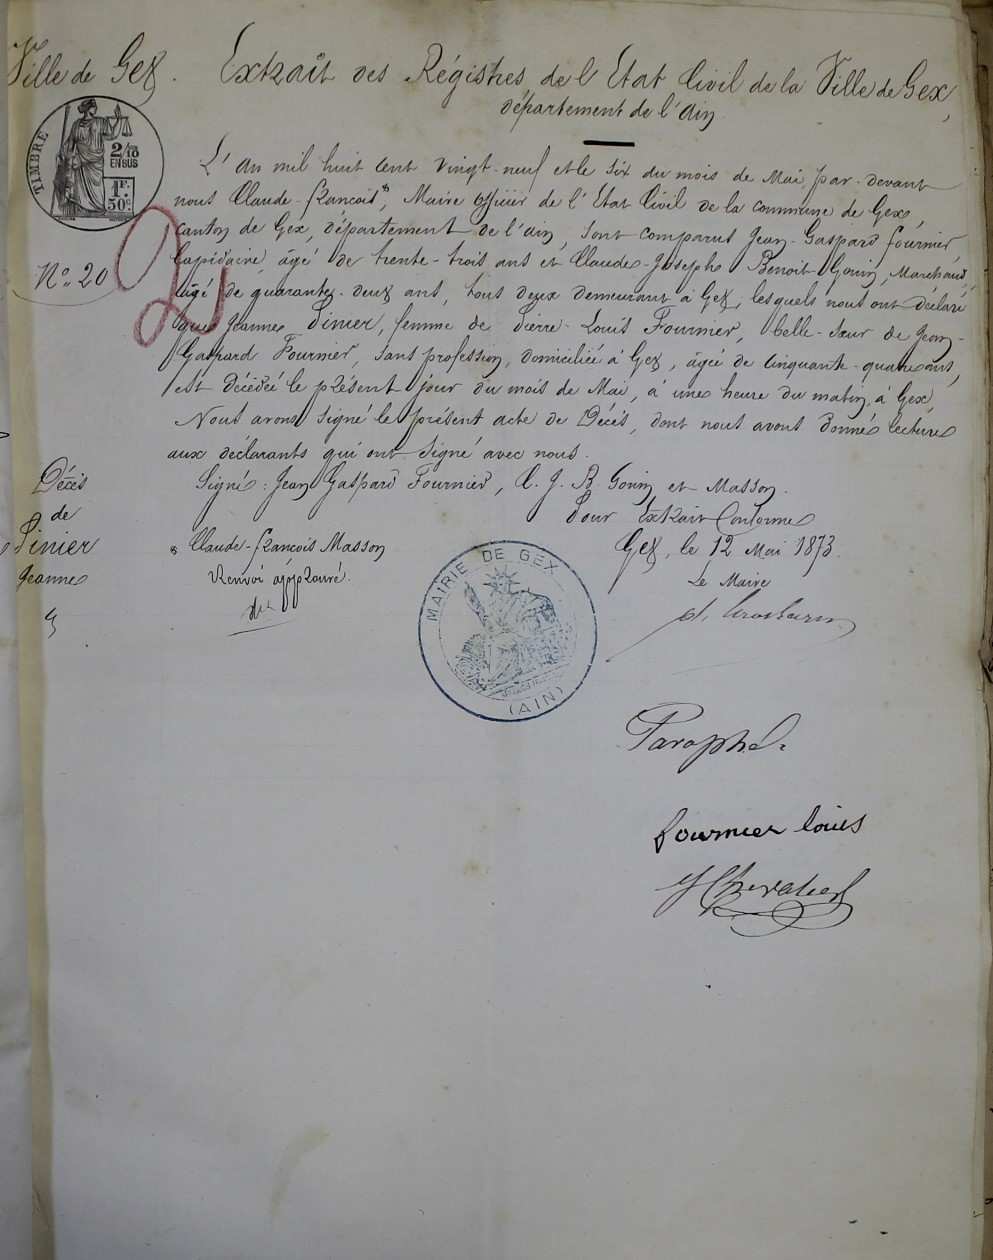 Ville de Gex. Extrait des Régistres de l'Etat Civil de la Ville de Gex,
département de l'Ain.
TIMBRE
2/10 EN SUS
1F. 50c.
L'an mil huit cent vingt-neuf et le six du mois de Mai, par-devant
nous Claude-François*, Maire officier de l'Etat Civil de la commune de Gex,
canton de Gex, département de l'Ain, sont comparus Jean-Gaspard Fournier,
No 20
2
Lapidaire, âgé de trente-trois ans et Claude-Joseph Benoit Gouin, Marchand,
âgé de quarante-deux ans, tous deux demeurant à Gex, lesquels nous ont déclaré
que Jeanne Pinier, femme de Pierre-Louis Fournier, belle-sœur de Jean-
Gaspard Fournier, sans profession, domiciliée à Gex, âgée de cinquante-quatre ans,
est décédé le présent jour du mois de Mai, à une heure du matin, à Gex,
Nous avons signé le présent acte de Décès, dont nous avons donné lecture
aux déclarants qui ont signé avec nous.
Décès
de
Pinier
Jeanne
Signé: Jean Gaspard Fournier, C. J. B. Gouin et Masson.
Pour Extrait Conforme
* Claude-François Masson
Renvoi approuvé.
Gex, le 12 Mai 1873.
Le Maire
MAIRIE DE GEX
(AIN)
Paraphé.
fournier louis
Chevalier